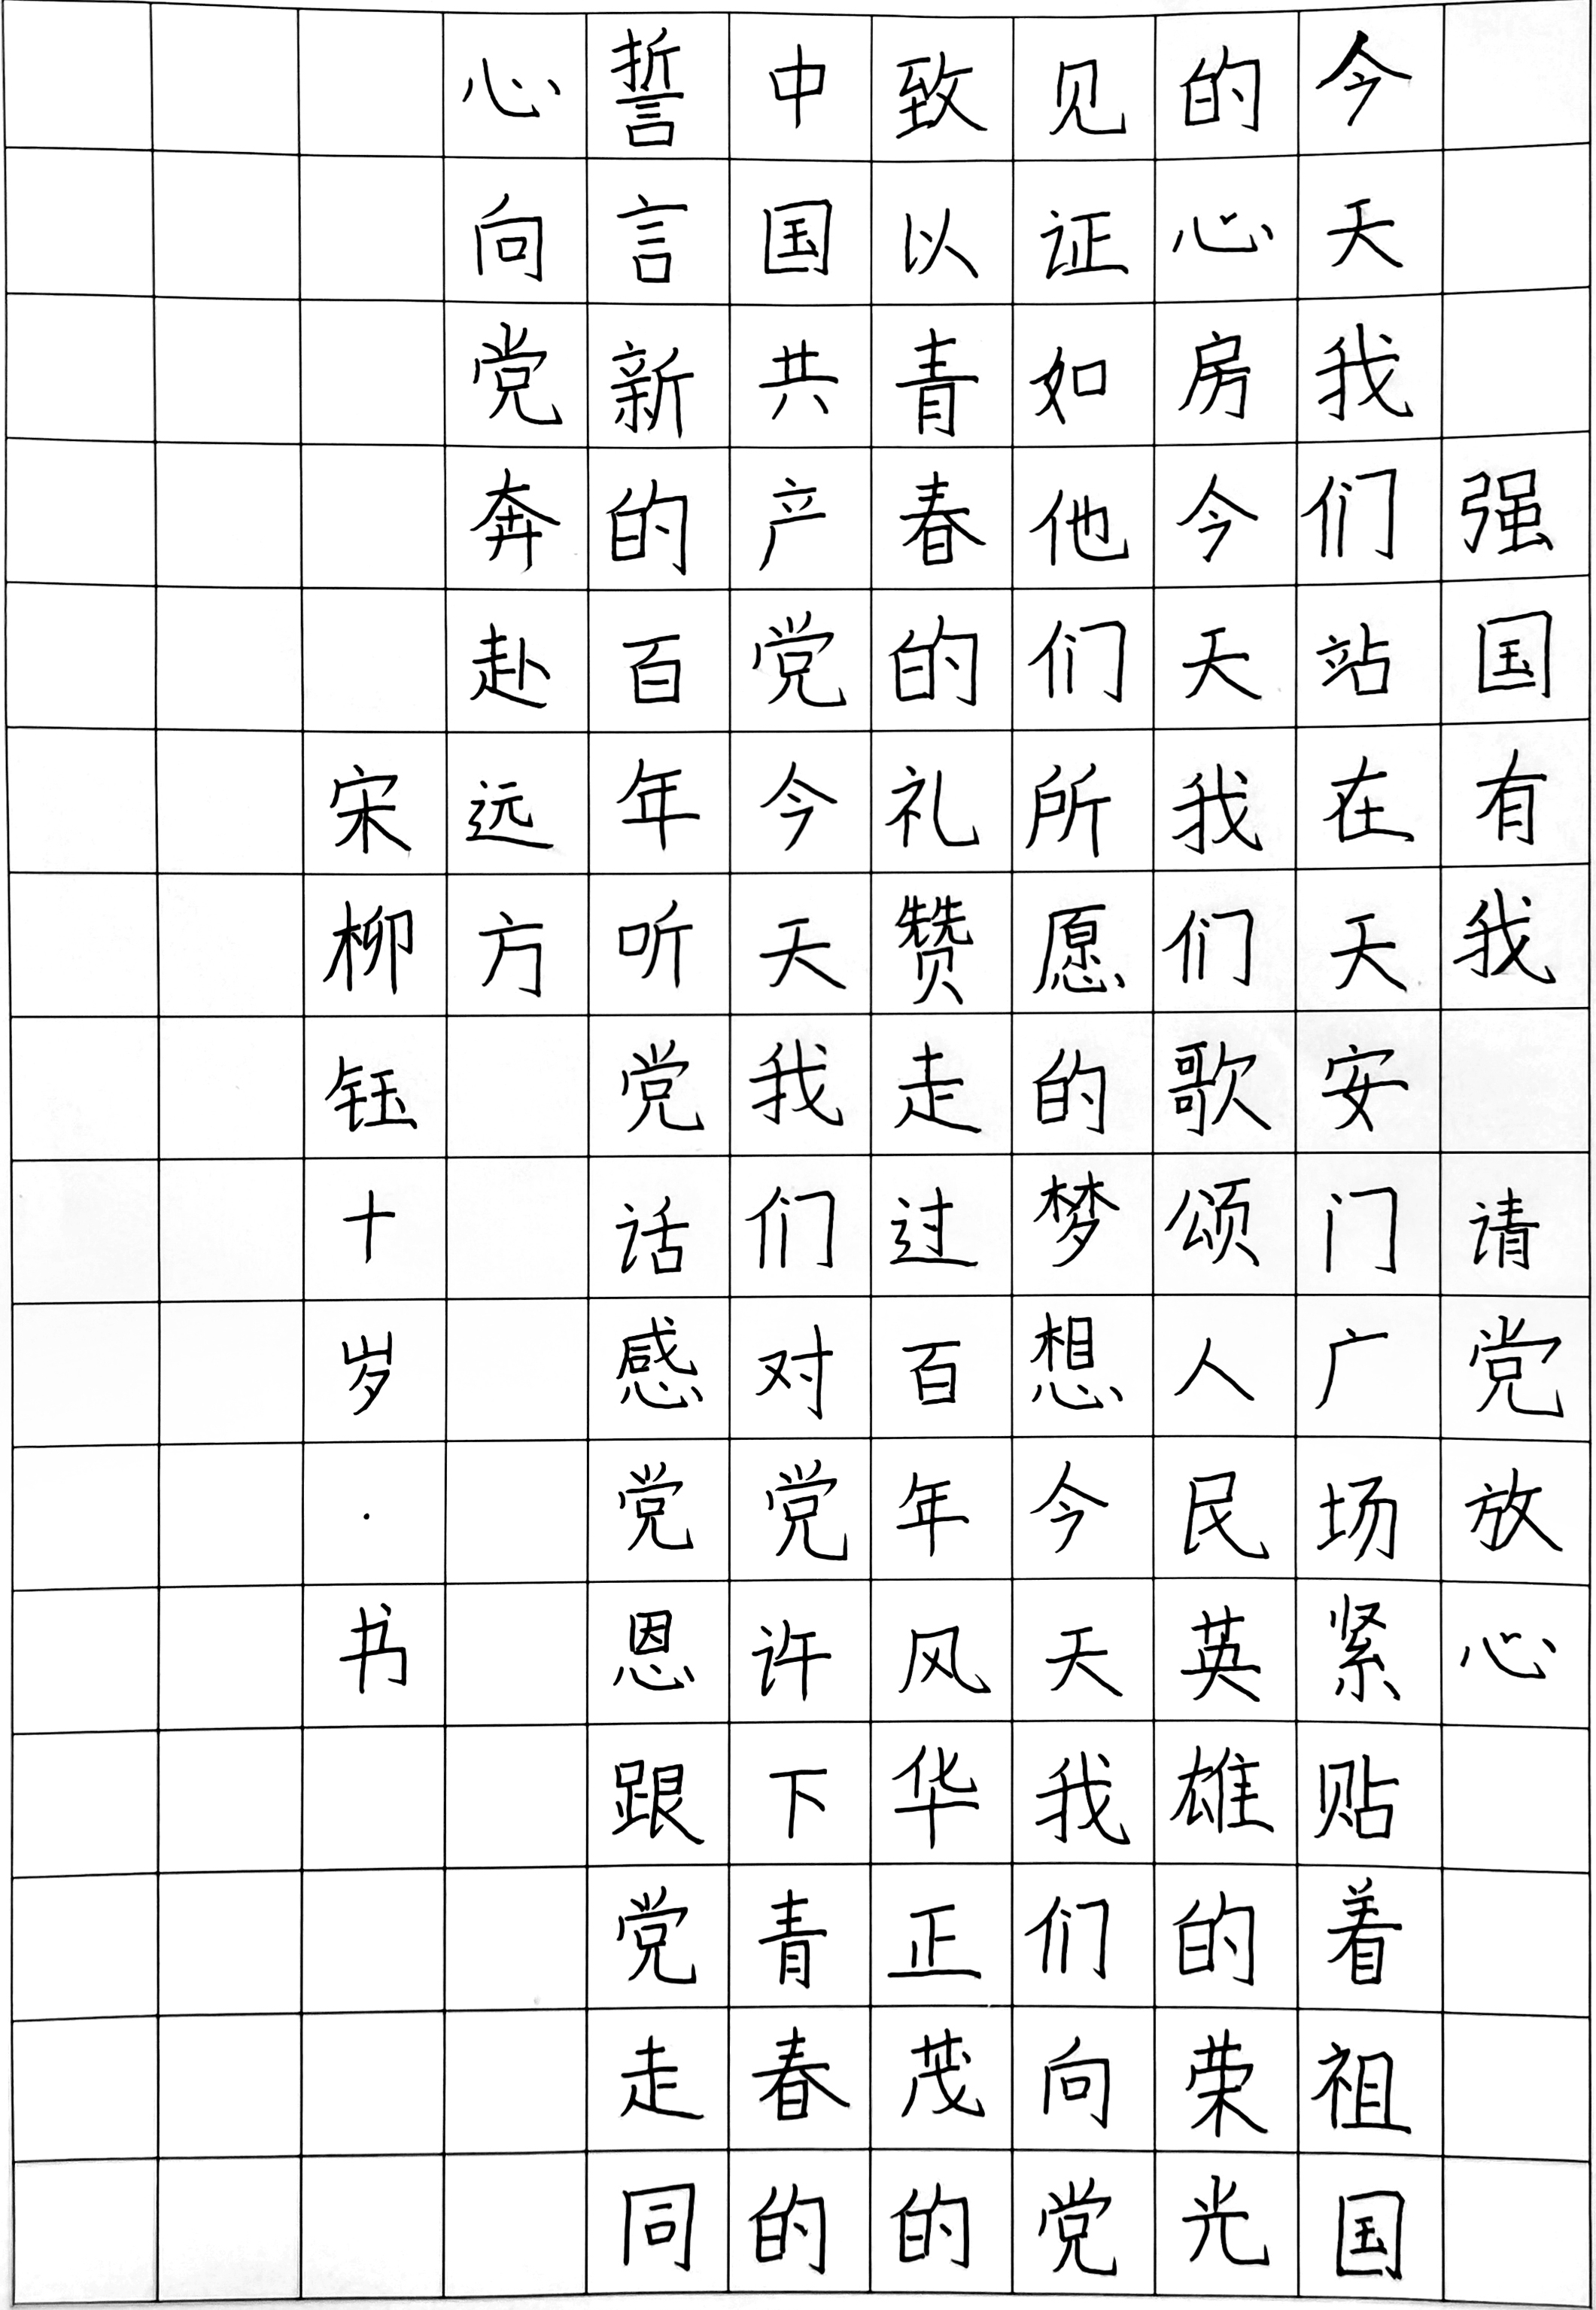 强国有我 请党放心
今天我们站在天安门广场紧贴着祖国
的心房今天我们歌颂人民英雄的荣光
见证如他们所愿的梦想今天我们向党
致以青春的礼赞走过百年风华正茂的
中国共产党今天我们对党许下青春的
誓言新的百年听党话感党恩跟党走同
心向党奔赴远方
宋柳钰十岁·书